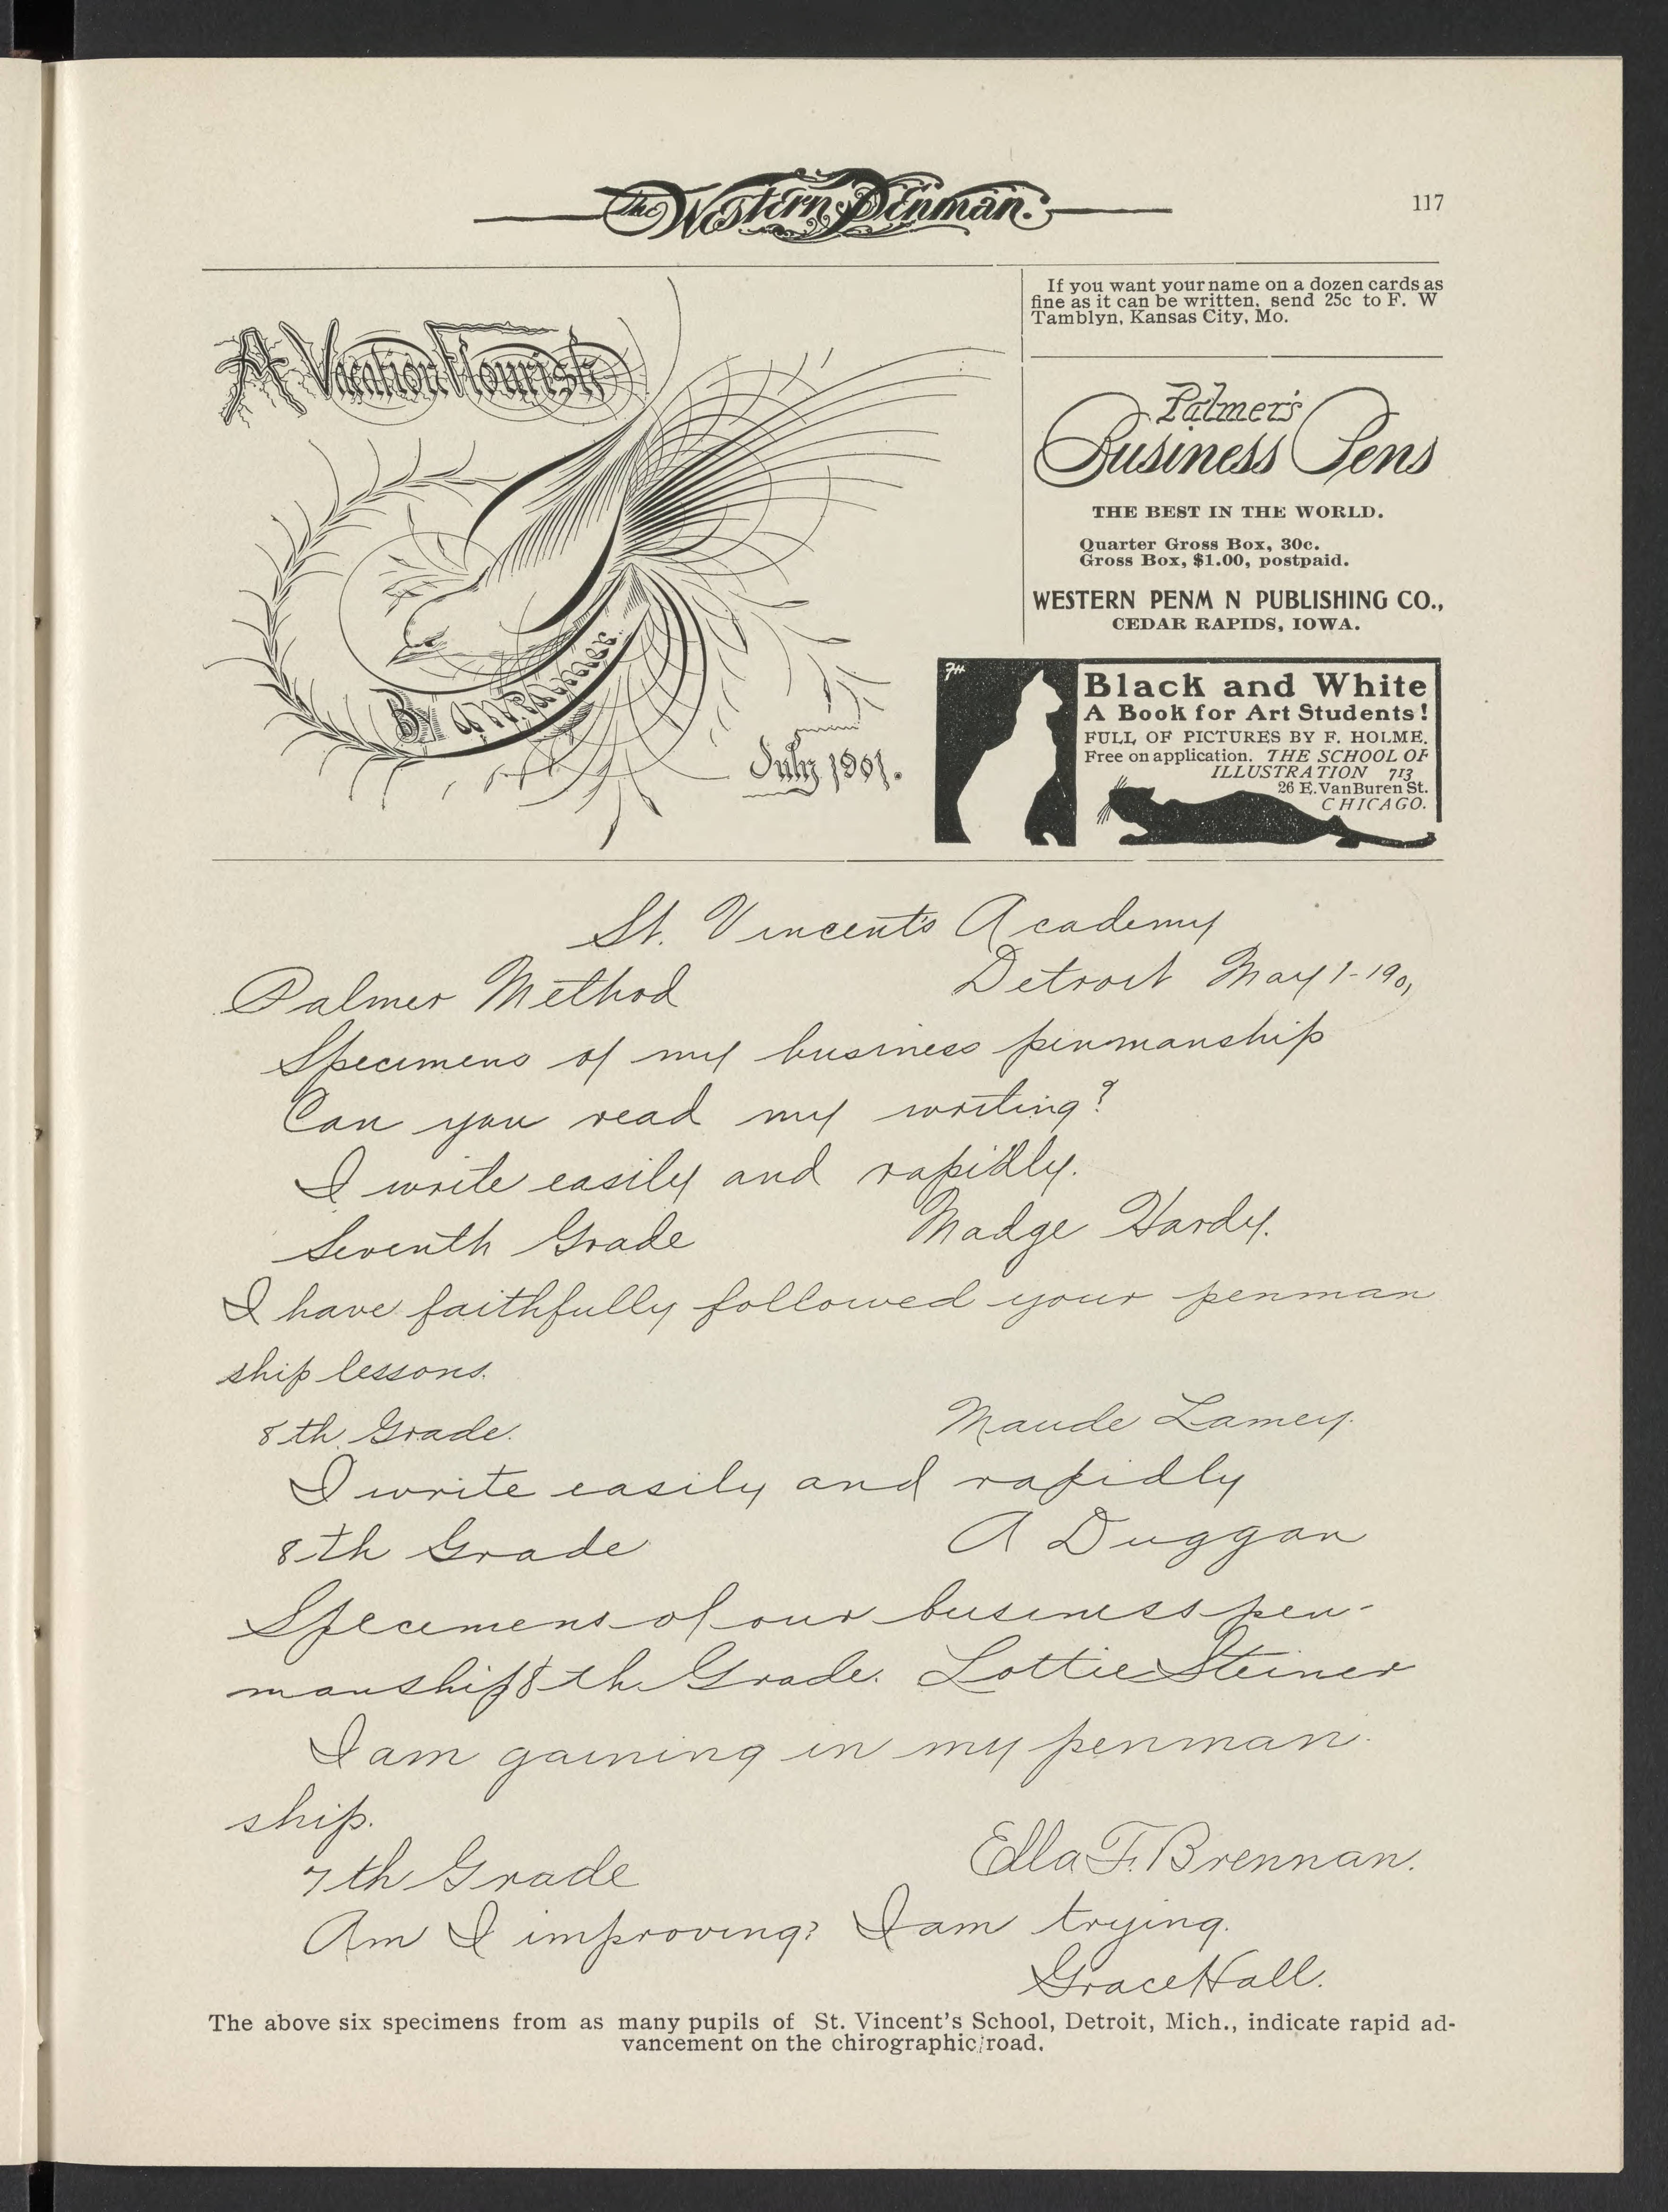 The Western Penman.
117
A Vacation Flourish
By A N Palmer.
July 1901.
If you want your name on a dozen cards as
fine as it can be written, send 25c to F. W
Tamblyn, Kansas City, Mo.
Palmer's
Business Pens
THE BEST IN THE WORLD.
Quarter Gross Box, 30c.
Gross Box, $1.00, postpaid.
WESTERN PENM N PUBLISHING CO.,
CEDAR RAPIDS, IOWA.
FH
Black and White
A Book for Art Students!
FULL OF PICTURES BY F. HOLME.
Free on application. THE SCHOOL OF
ILLUSTRATION 713
26 E. Van Buren St.
CHICAGO.
St. Vincent's Academy
Palmer Method Detroit May 1-1901
Specimens of my business penmanship
Can you read my writing?
I write easily and rapidly.
Seventh Grade Madge Hardy.
I have faithfully followed your penman
ship lessons.
8th Grade. Maude Lamey.
I write easily and rapidly
8th Grade A Duggan
Specimens of our business pen-
manship 8th Grade. Lottie Steiner
I am gaining in my penman-
ship.
7th Grade Ella F. Brennan.
Am I improving? I am trying.
Grace Hall.
The above six specimens from as many pupils of St. Vincent's School, Detroit, Mich., indicate rapid ad-
vancement on the chirographic road.